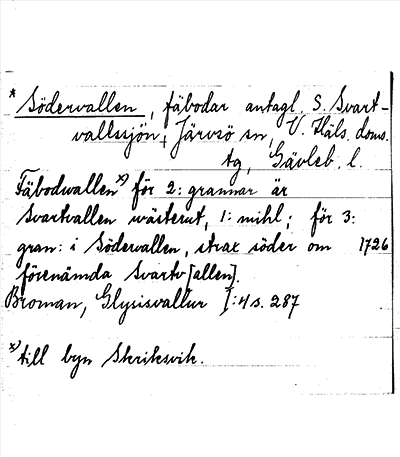 * Södervallen, fäbodar antagl. S. Svart-
vallssjön, Järvsö sn, V. Häls. doms.
tg, Gävleb. l.
Fäbodwallen x) för 2: grannar är
Svartvallen wästerut, 1: mihl; för 3:
gran: i Södervallen, strax söder om 1726
förenämda Svartv[allen].
Broman, Glysisvallur I:4 s. 287
x) till byn Skriksvik.